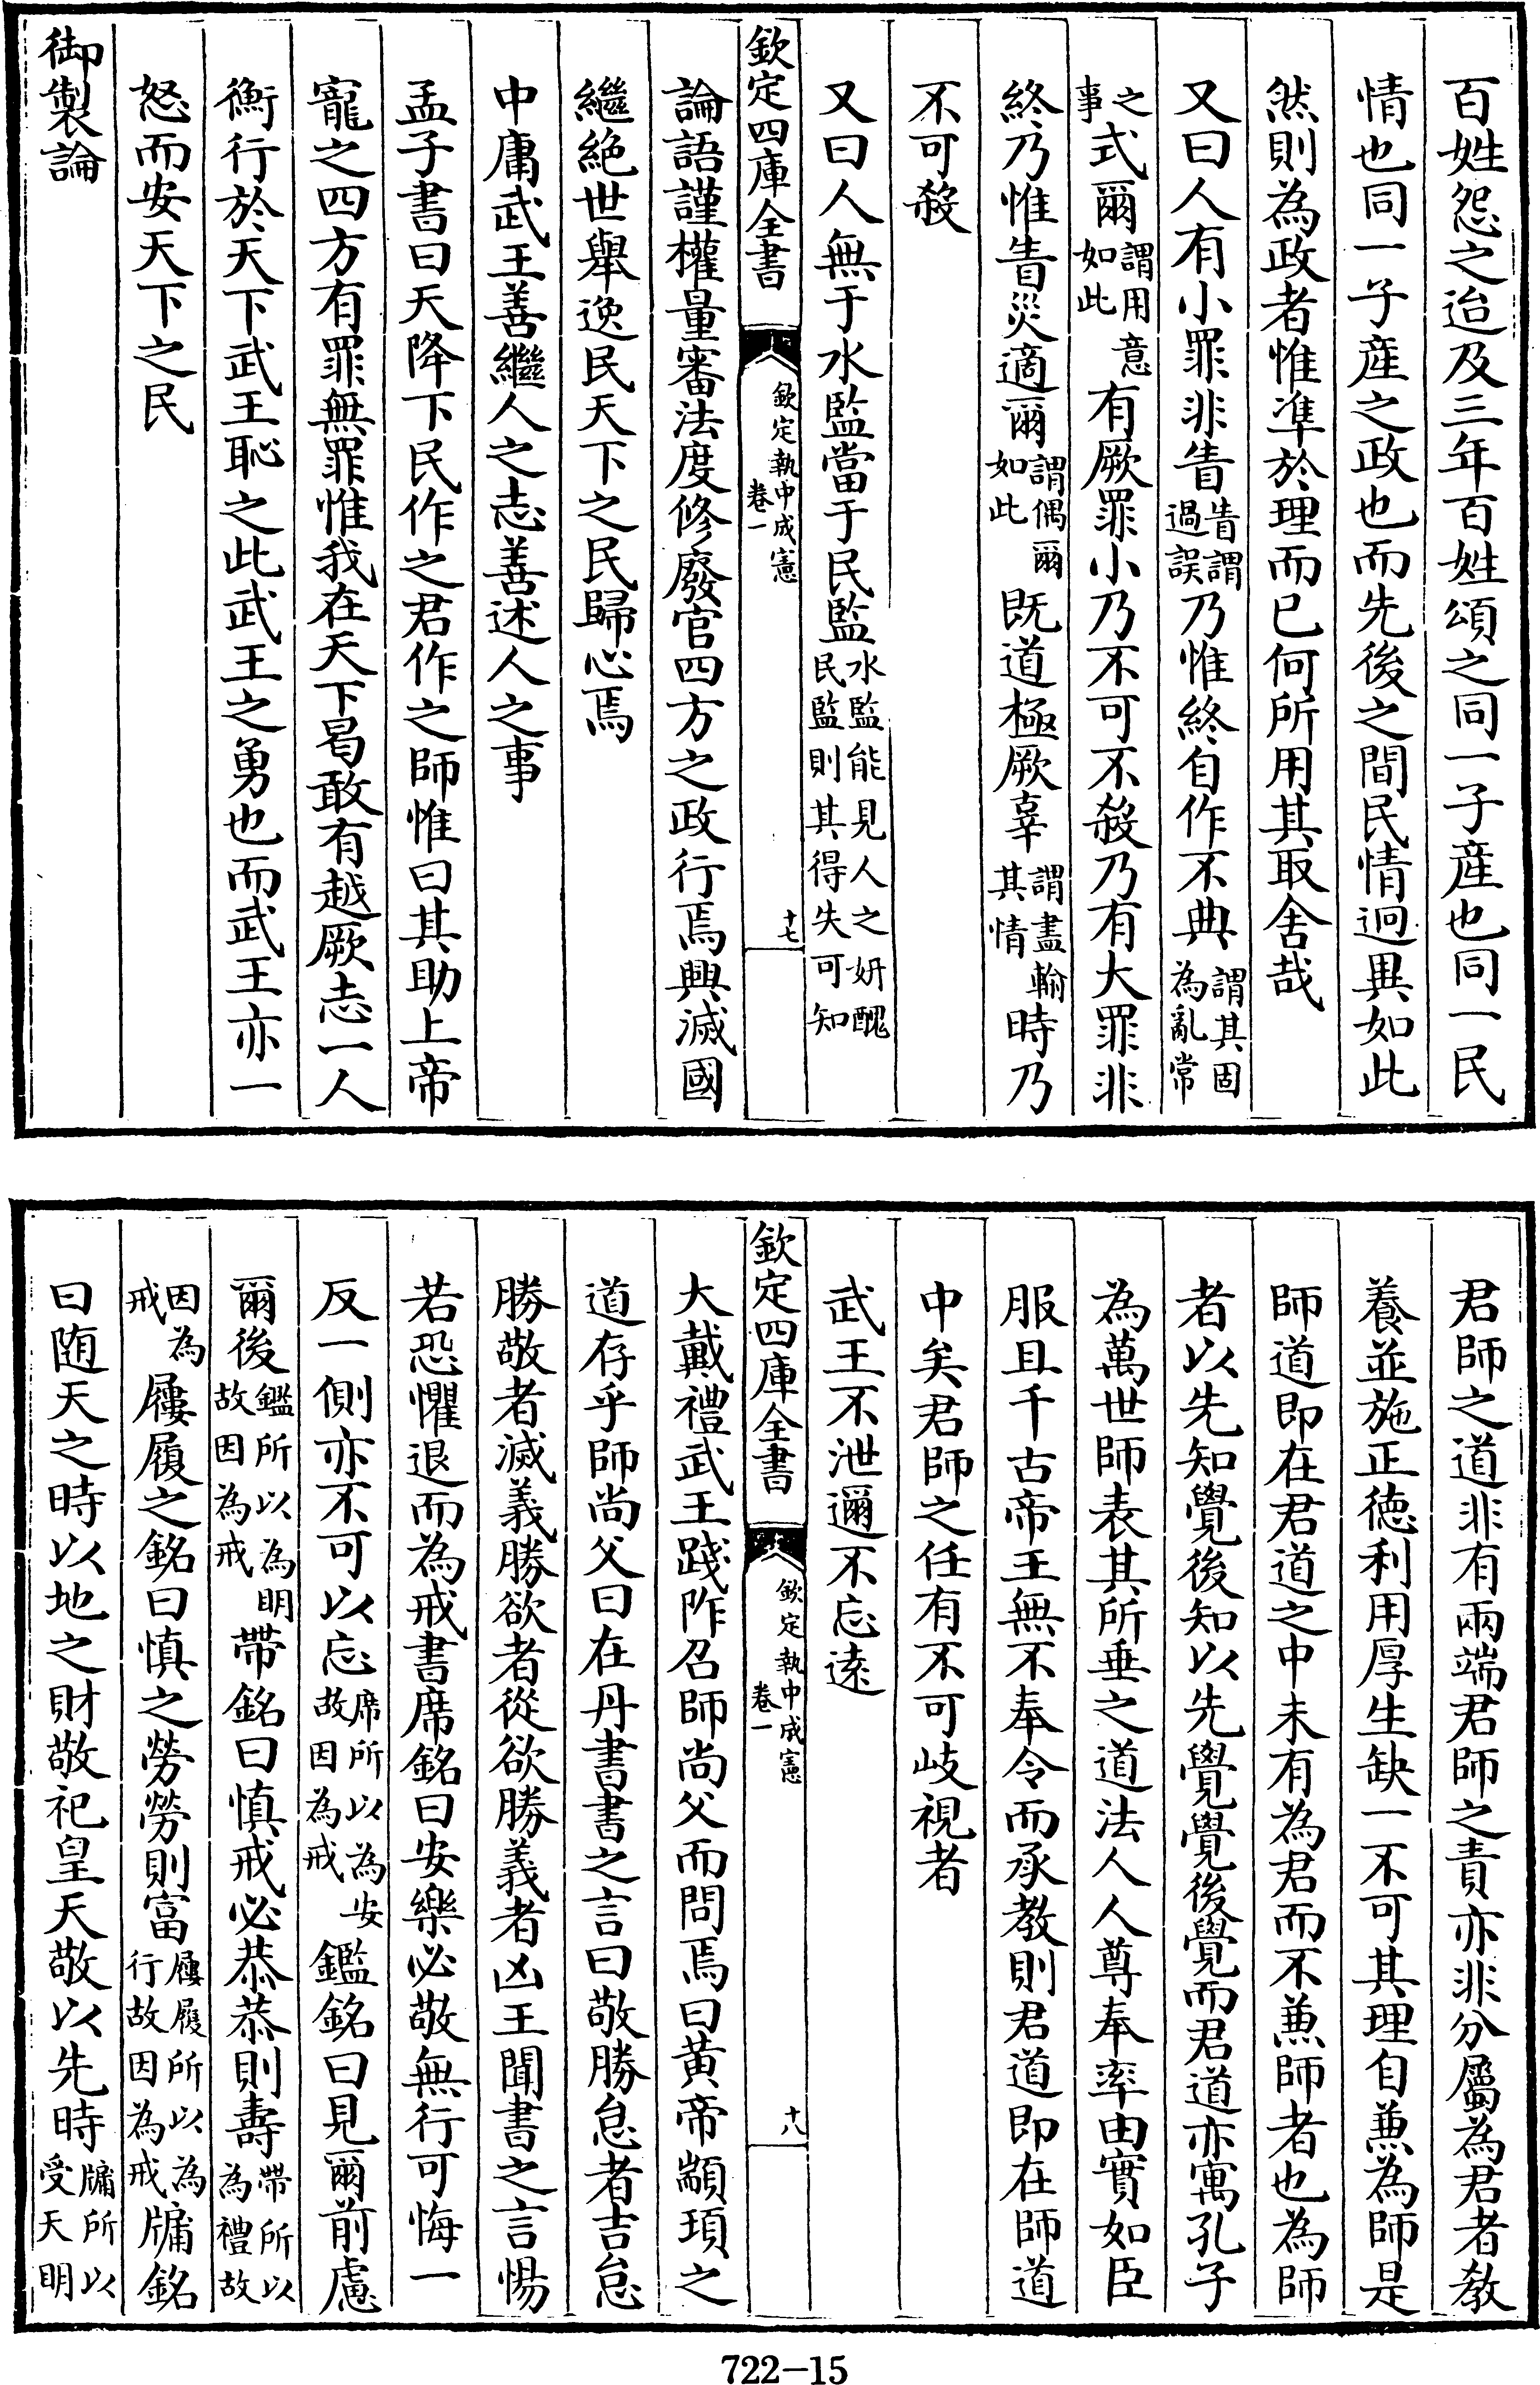 百姓怨之迨及三年百姓頌之同一子産也同一民
情也同一子産之政也而先後之間民情迥異如此
然則為政者惟凖於理而已何所用其取舍哉
又曰人有小罪非眚眚謂過誤乃惟終自作不典謂其固為亂常
之事式爾謂用意如此有厥罪小乃不可不殺乃有大罪非
終乃惟眚災適爾謂偶爾如此既道極厥辜謂盡輸其情時乃
不可殺
又曰人無于水監當于民監水監能見人之妍醜民監則其得失可知
欽定四庫全書
欽定執中成憲
卷一
十七
論語謹權量審法度修廢官四方之政行焉興滅國
繼絶世舉逸民天下之民歸心焉
中庸武王善繼人之志善述人之事
孟子書曰天降下民作之君作之師惟曰其助上帝
寵之四方有罪無罪惟我在天下曷敢有越厥志一人
衡行於天下武王恥之此武王之勇也而武王亦一
怒而安天下之民
御製論
君師之道非有兩端君師之責亦非分屬為君者教
養並施正徳利用厚生缺一不可其理自兼為師是
師道即在君道之中未有為君而不兼師者也為師
者以先知覺後知以先覺覺後覺而君道亦寓孔子
為萬世師表其所垂之道法人人尊奉率由實如臣
服且千古帝王無不奉令而承教則君道即在師道
中矣君師之任有不可歧視者
武王不泄邇不忘逺
欽定四庫全書
欽定執中成憲
卷一
十八
大戴禮武王踐阼召師尚父而問焉曰黄帝顓頊之
道存乎師尚父曰在丹書書之言曰敬勝怠者吉怠
勝敬者滅義勝欲者從欲勝義者凶王聞書之言惕
若恐懼退而為戒書席銘曰安樂必敬無行可悔一
反一側亦不可以忘席所以為安故因為戒鑑銘曰見爾前慮
爾後鑑所以為明故因為戒帶銘曰慎戒必恭恭則壽帶所以為禮故
因為戒屨履之銘曰慎之勞勞則富屨履所以為行故因為戒牖銘
曰隨天之時以地之財敬祀皇天敬以先時牖所以受天明
722-15